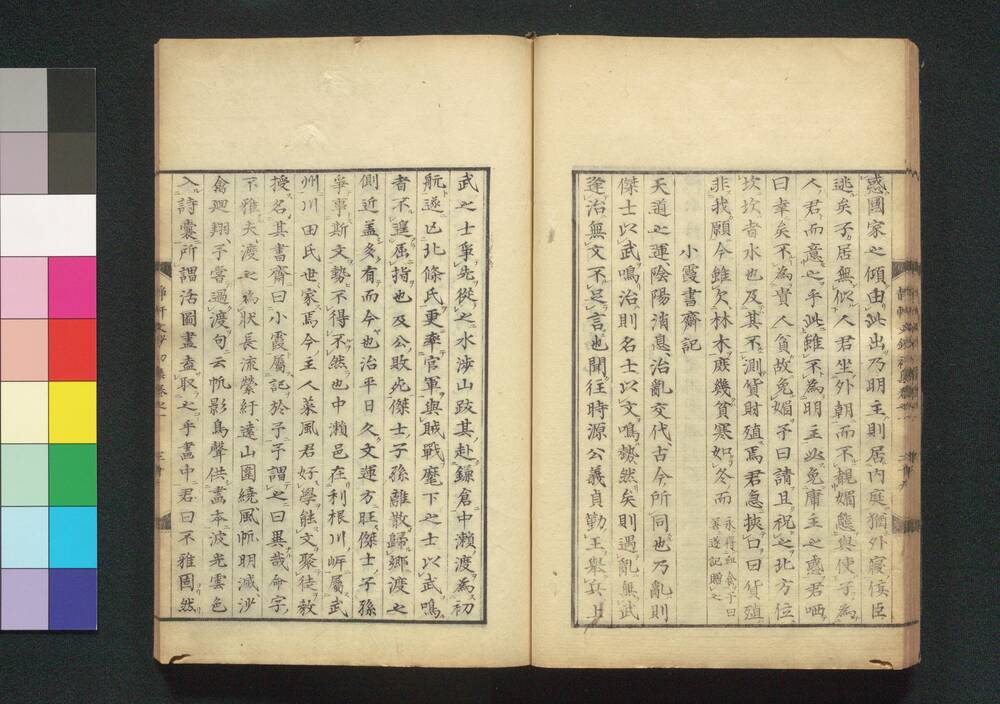 惑國家之傾由此出乃明主則居內庭猶外寢俟臣
逃矣子居無似人君坐外朝而不親媚態與使子為
人君而意之乎此雖不為明主必免庸主之惑君哂
曰幸矣不為貴人負故免媚予曰請且祝之北方位
坎坎者水也及其不測貨財殖焉君急挾口曰貨殖
非我願今雖欠林木庶幾貧寒如冬而永得血食予曰善遂記贈之
小霞書齋記
天道之運陰陽消息治亂交代古今所同也乃亂則
傑士以武鳴治則名士以文鳴勢然矣則遇亂無武
逢治無文不足言也聞往時源公義貞勤王舉兵上
武之士爭先從之水涉山跋其赴鎌倉中瀨渡為初
航遂亡北條氏更率官軍與賊戰麾下之士以武鳴
者不遑屈指也及公敗死傑士子孫離散歸鄉渡之
側近蓋多有而今也治平日久文運方旺傑士子孫
爭事斯文勢不得不然也中瀨邑在利根川岍屬武
州川田氏世家焉今主人菜風君好學能文聚徒教
授名其書齋曰小霞屬記於予予謂之曰異哉命字
不雅夫渡之為狀長流縈紆遠山圍繞風帆明滅沙
禽廻翔予嘗過渡句云帆影鳥聲供畫本波光雲色
入詩囊所謂活圖畫盍取之乎畫中君曰不雅固然